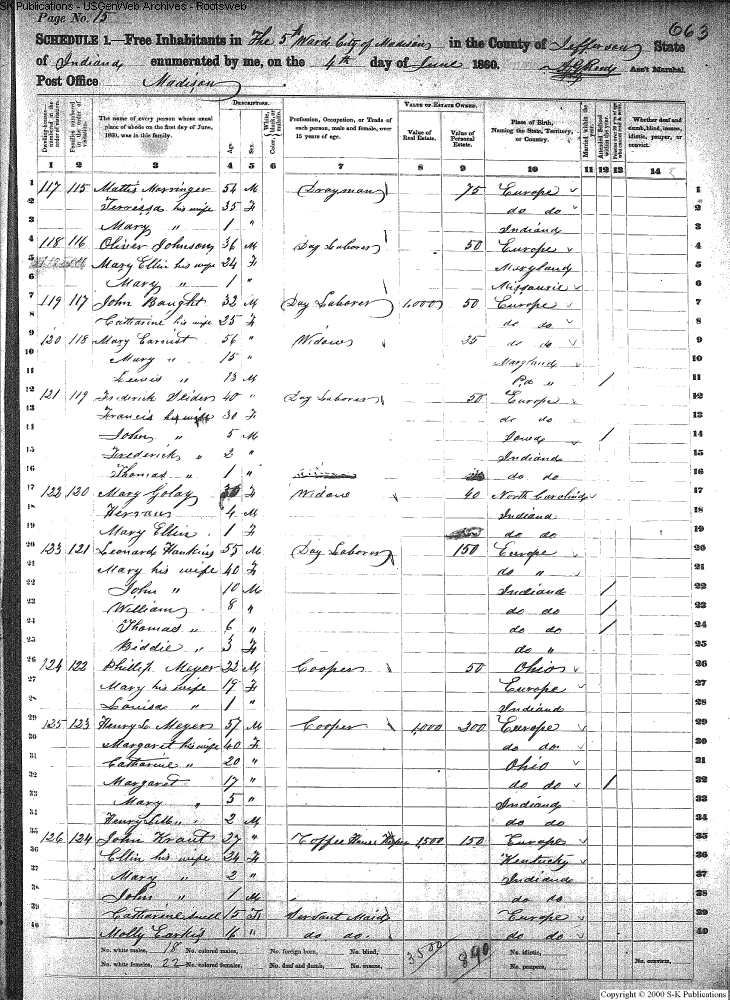 S-K Publications - USGenWeb Archives - Rootsweb
Page No. 15
663
SCHEDULE 1.—Free Inhabitants in The 5th Ward City of Madison in the County of Jefferson State
of Indiana enumerated by me, on the 4th day of June 1860. Ass't Marshal.
Post Office Madison
DESCRIPTION. VALUE OF ESTATE OWNED.
The name of every person whose usual place of abode on the first day of June, 1860, was in this family.
Age. Sex. Color,
Profession, Occupation, or Trade of each person, male and female, over 15 years of age.
Value of Real Estate. Value of Personal Estate.
Place of Birth, Naming the State, Territory, or Country.
Married within the year. Attended School within the year.
Whether deaf and dumb, blind, insane, idiotic, pauper, or convict.
1 2 3 4 5 6 7 8 9 10 11 12 13 14
1 117 115 Mattis Morringer 54 M Drayman 75 Europe 1
2 Terrissa his wife 35 F do do 2
3 Mary " 1 " Indiana 3
4 118 116 Oliver Johnson 36 M Day Laborer 50 Europe 4
5 Mary Ellin his wife 24 F Maryland 5
6 Mary " 1 " Missourie 6
7 119 117 John Baught 32 M Day Laborer 1,000 50 Europe 7
8 Catharine his wife 25 F do do 8
9 120 118 Mary Earnist 56 " Widow 35 do do 9
10 Mary " 15 " Maryland 10
11 Lewis " 13 M Pa " / 11
12 121 119 Frederick 40 " Day Laborer 50 Europe 12
13 Francis his wife 30 F do do 13
14 John " 5 M Iowa / 14
15 Frederick " 2 " Indiana 15
16 Thomas " 1 " do do 16
17 122 120 Mary Golay 30 F Widow 40 North Carolina 17
18 4 M Indiana 18
19 Mary Ellin 1 F do do 19
20 123 121 Leonard Hankins 55 M Day Laborer 150 Europe 20
21 Mary his wife 40 F do " 21
22 John " 10 M Indiana / 22
23 William 8 " do do / 23
24 Thomas " 6 " do do / 24
25 Biddie " 3 F do " 25
26 124 122 Phillip Meyer 22 M Cooper 50 Ohio 26
27 Mary his wife 19 F Europe 27
28 Louisa " 1 " Indiana 28
29 125 123 Henry L. Meyers 57 M Cooper 1,000 300 Europe 29
30 Margaret his wife 40 F do do 30
31 Catharine " 20 " Ohio 31
32 Margaret 17 " do do / 32
33 Mary " 5 " Indiana 33
34 Henry " 2 M do do 34
35 126 124 John Kraut 37 " Coffee House Keeper 1,500 150 Europe 35
36 Ellin his wife 24 F Kentucky 36
37 Mary " 2 " Indiana 37
38 John " 1 M do do 38
39 Catharine Snell 15 F Servant Maid Europe 39
40 Molly Earkis 16 " do do do do 40
No. white males, 18 No. colored males, No. foreign born, No. blind, 3500 890 No. idiotic, No. convicts,
No. white females, 22 No. colored females, No. deaf and dumb, No. insane, No. paupers,
Copyright © 2000 S-K Publications